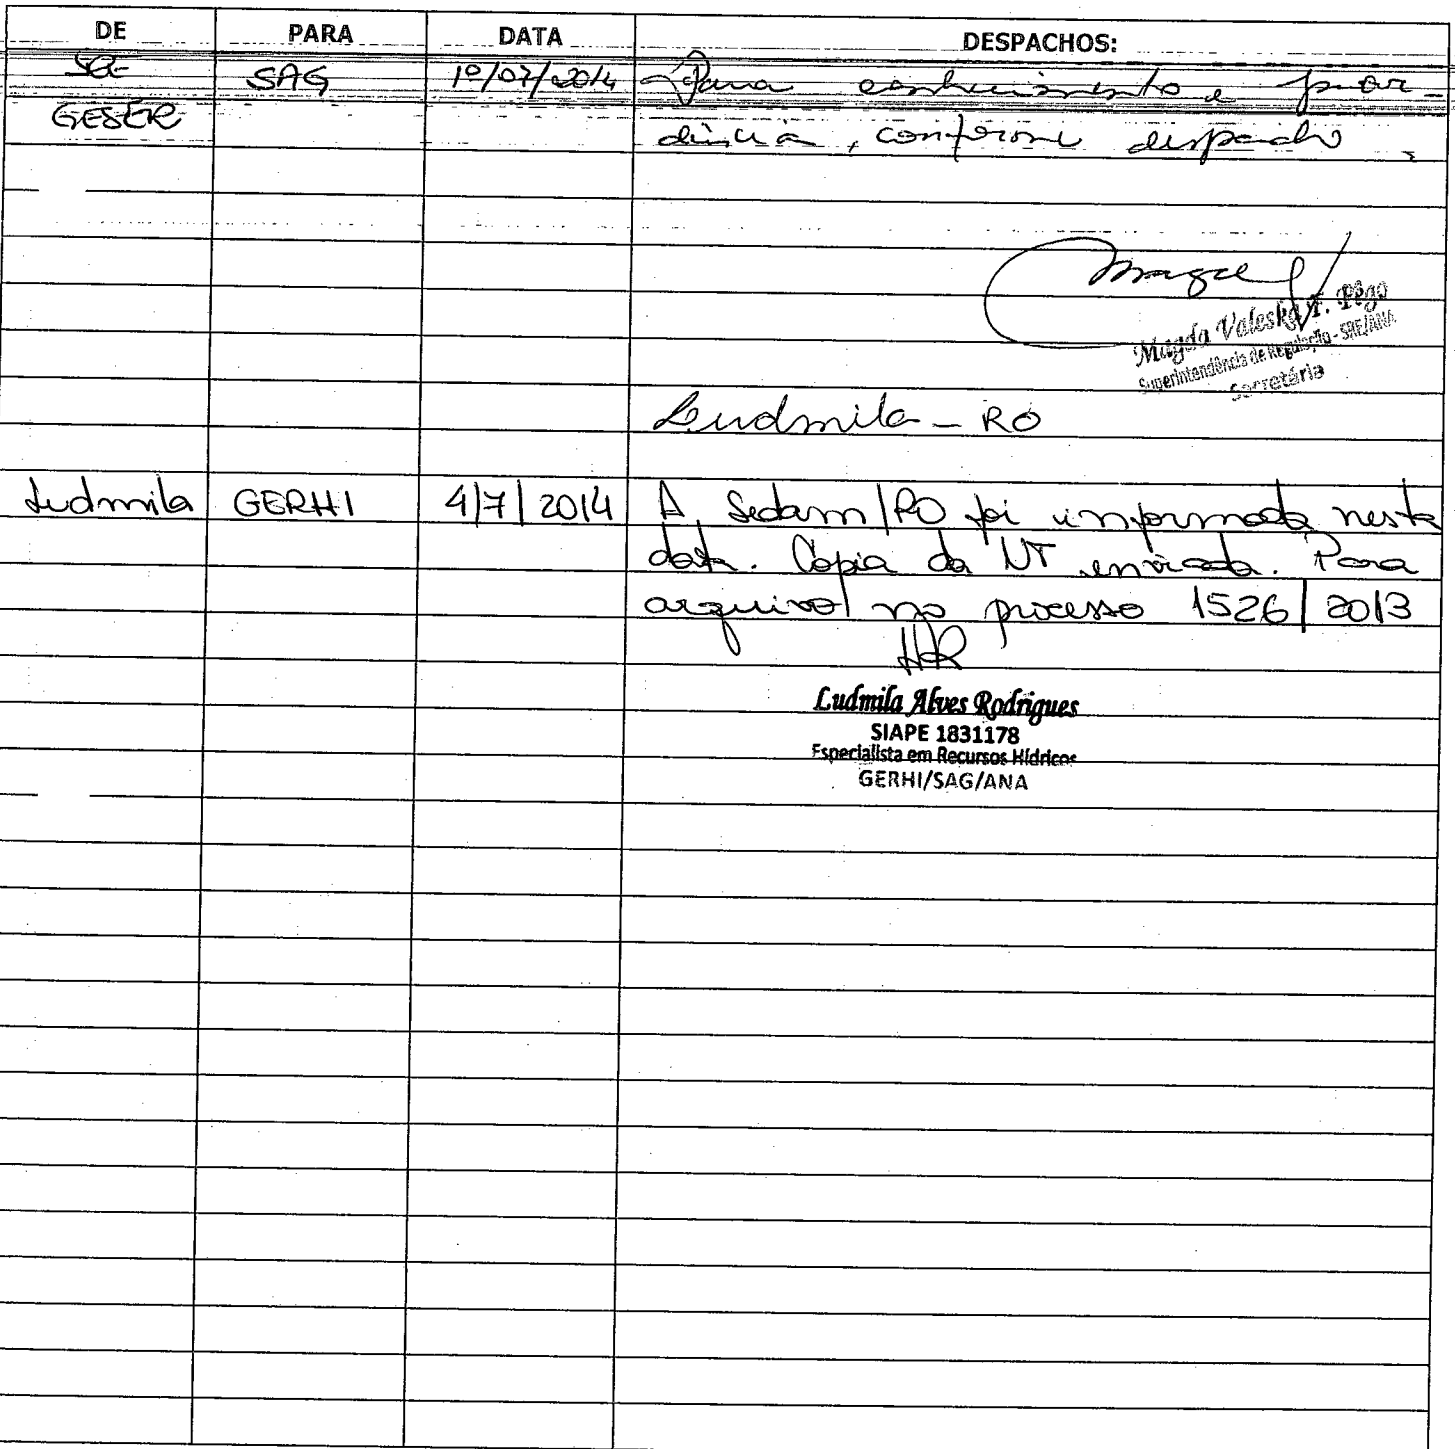 DE PARA DATA DESPACHOS:
SAG 1º/07/2014 Para conhecimento e provi-
GESER dência, conforme despacho.
Magda Valeska T. Pêgo
Superintendência de Regulação - SRE/ANA
Secretária
Ludmila - RO
Ludmila GERHI 4/7/2014 A Sedam/RO foi informada nesta
data. Copia da NT enviada. Para
arquivo no processo 1526/2013
Ludmila Alves Rodrigues
SIAPE 1831178
Especialista em Recursos Hídricos
GERHI/SAG/ANA